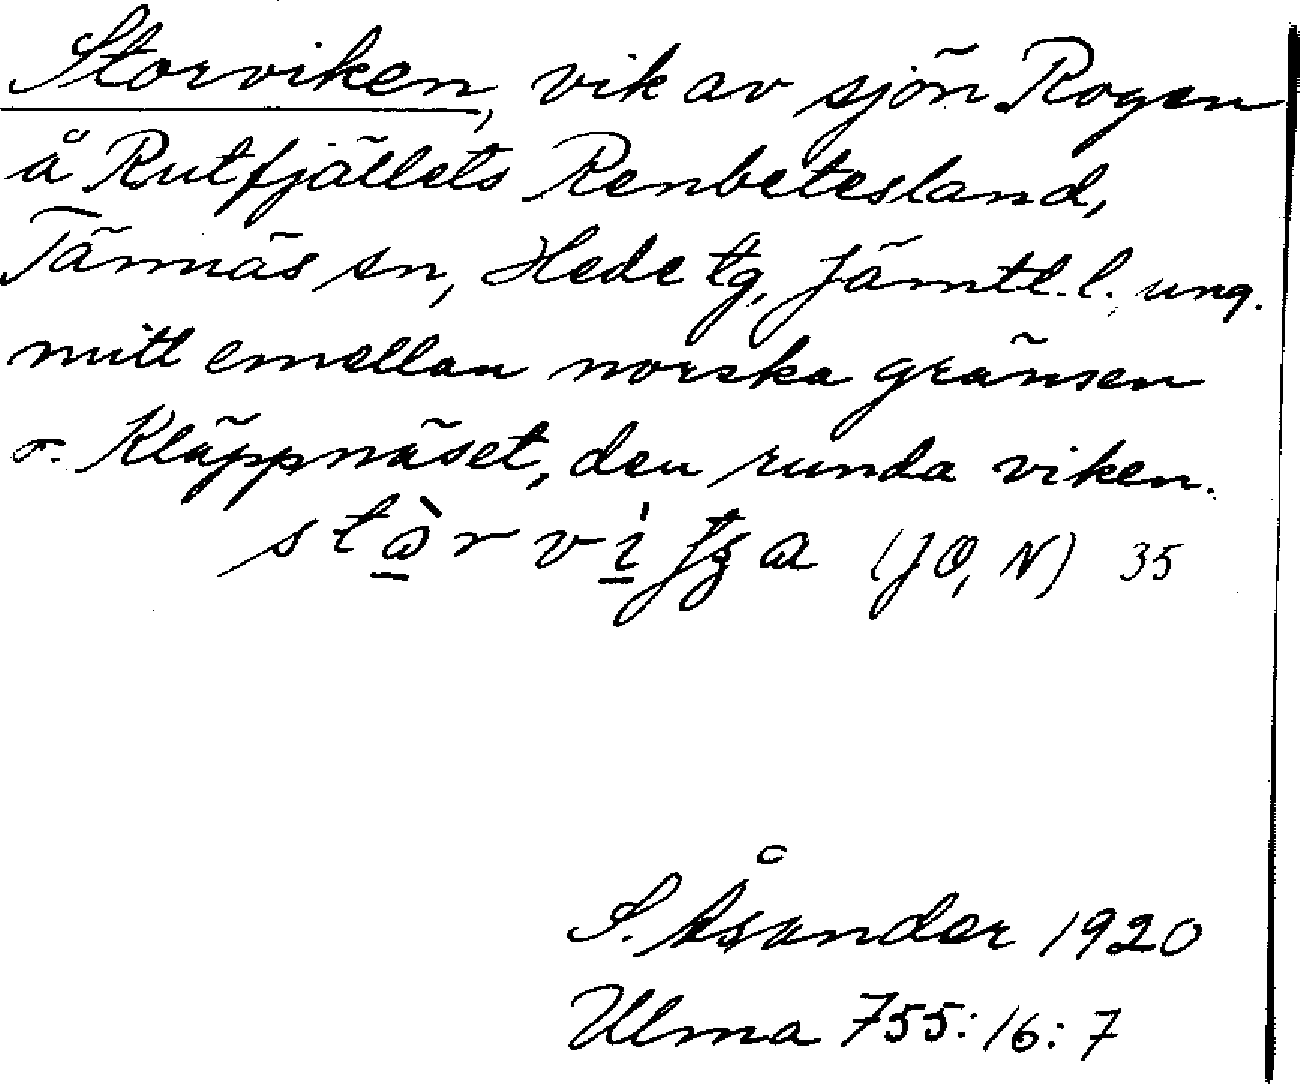 Storviken, vik av sjön Rogen
å Rutfjällets Renbetesland,
Tännäs sn, Hede tg, Jämtl. l. ung.
mitt emellan norska gränsen
o. Kläppnäset, den runda viken.
(JO, N) 35
S. Åsander 1920
Ulma 755:16:7